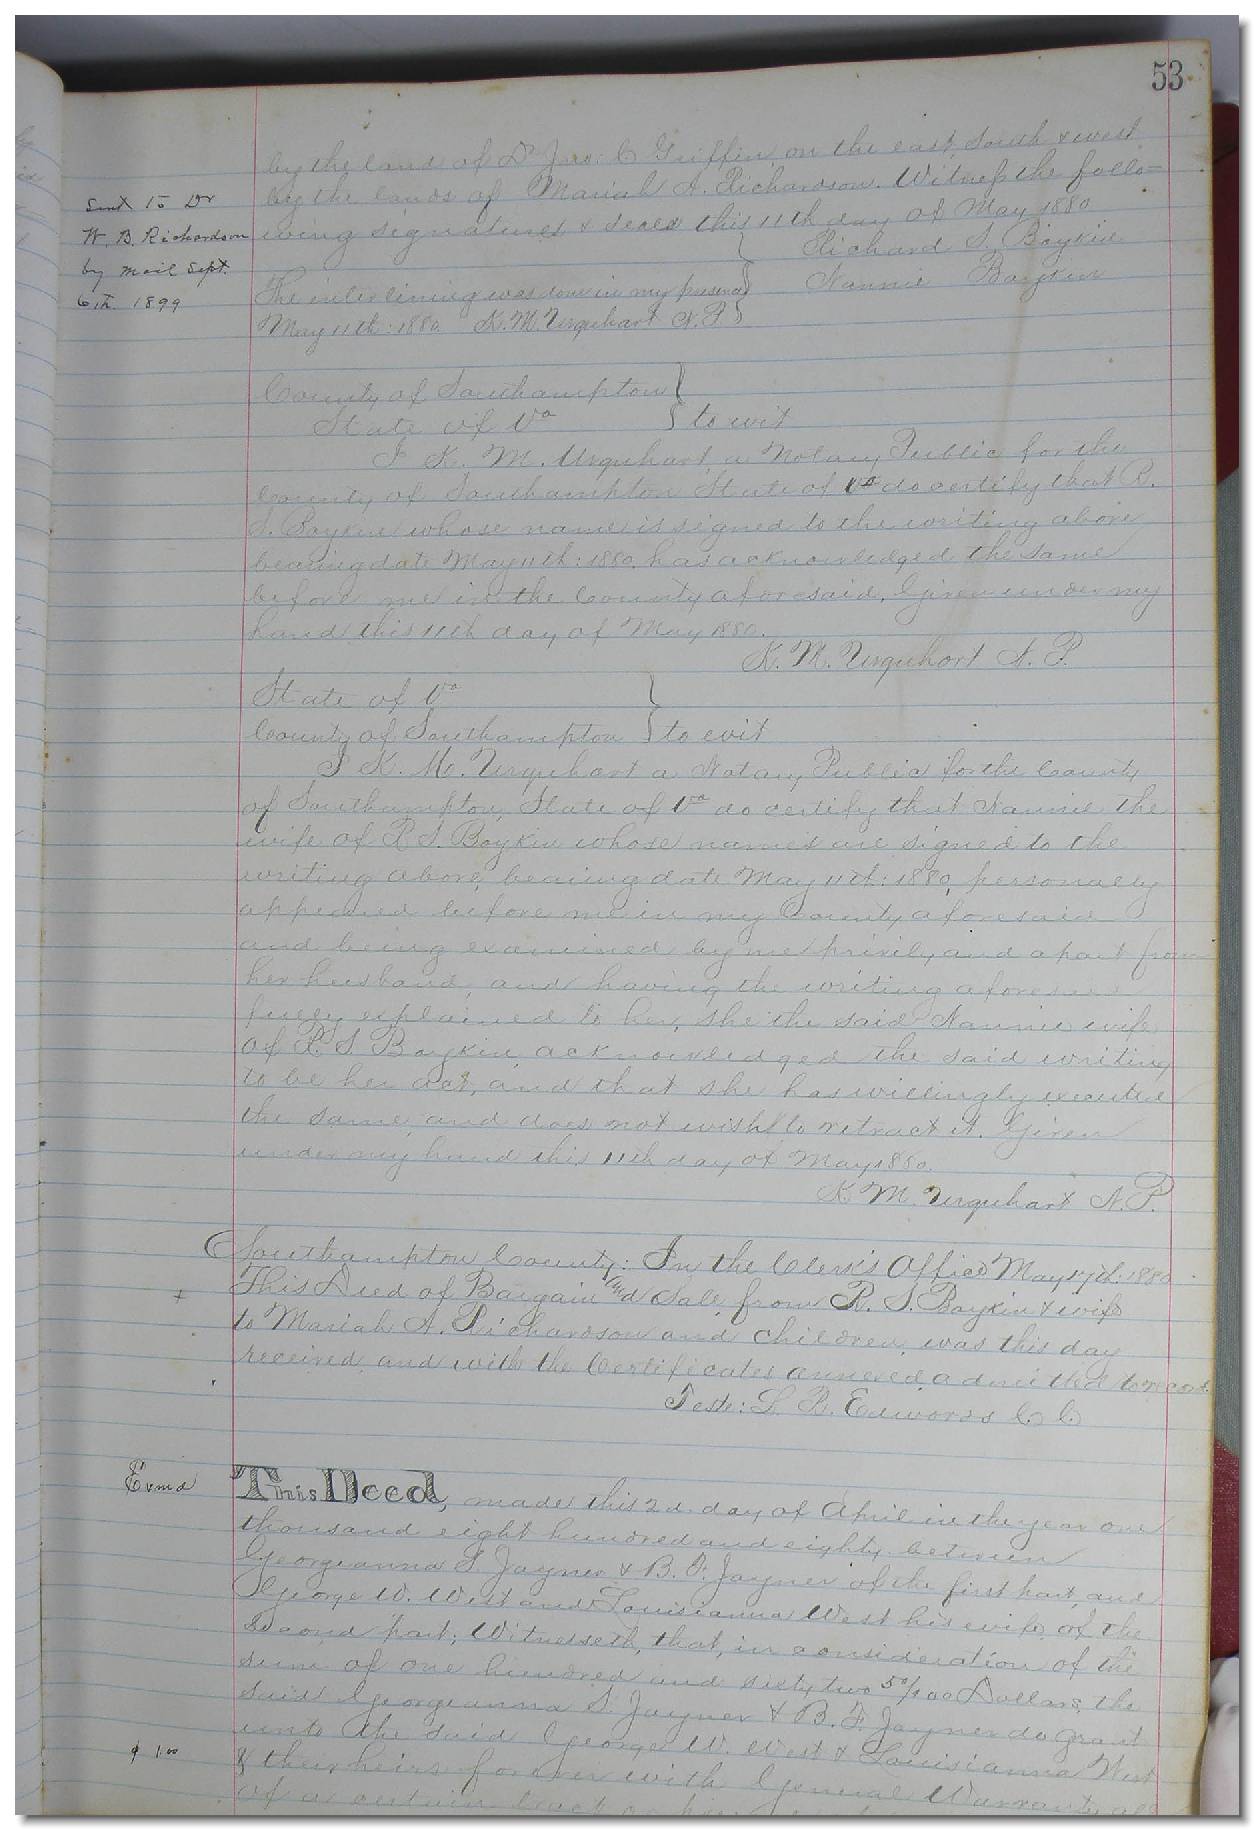 53
by the land of Dr Jno: C Griffin, on the east, South & west
by the lands of Mariah A. Richardson. Witness the follo-
wing signatures & seals this 11th day of May 1880
Sent to Dr
W. B. Richardson
by mail Sept.
6th 1899
Richard S. Boykin
Nannie Boykin
The interlining was done in my presence
May 11th: 1880. K. M. Urquhart N. P.
County of Southampton
State of Va to wit
I K. M. Urquhart, a Notary Public for the
County of Southampton State of Va do certify that R.
S. Boykin whose name is signed to the writing above
bearing date May 11th: 1880, has acknowledged the same
before me in the County aforesaid. Given under my
hand this 11th day of May 1880.
K. M. Urquhart N. P.
State of Va
County of Southampton to wit
I K. M. Urquhart a Notary Public for the County
of Southampton, State of Va do certify that Nannie the
wife of R. S. Boykin whose names are signed to the
writing above, bearing date May 11th: 1880, personally
appeared before me in my County aforesaid
and being examined by me privily and apart from
her husband, and having the writing aforesaid
fully explained to her, she the said Nannie wife
of R. S. Boykin acknowledged the said writing
to be her act, and that she has willingly executed
the same, and does not wish to retract it. Given
under my hand this 11th day of May 1880.
K. M. Urquhart N. P.
Southampton County: In the Clerk's Office May 17th: 1880
This Deed of Bargain and Sale from R. S. Boykin & wife
to Mariah A. Richardson and children, was this day
received, and with the Certificates annexed admitted to record.
Teste: L. R. Edwards C C
Exmd
This Deed, made this 2d. day of April in the year one
thousand eight hundred and eighty between
Georgeanna S. Jayner & B. F. Jayner of the first part, and
George W. West and Louisianna West his wife of the
second part; Witnesseth, that, in consideration of the
sum of one hundred and sixty two 50/100 Dollars, the
said Georgeanna S. Jayner & B. F. Jayner do grant
unto the said George W. West & Louisianna West
$ 1.00
& their heirs forever with General Warranty all
of a certain tract